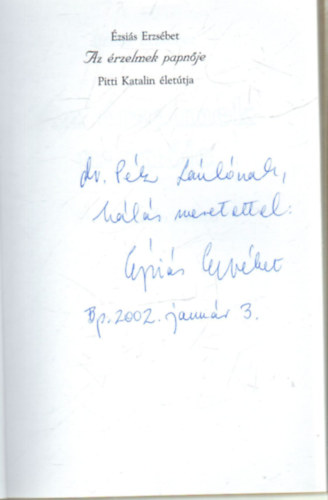 Ézsiás Erzsébet
Az érzelmek papnője
Pitti Katalin életútja
dr. Pék Lászlónak,
hálás szeretettel:
Ézsiás Erzsébet
Bp. 2002. január 3.